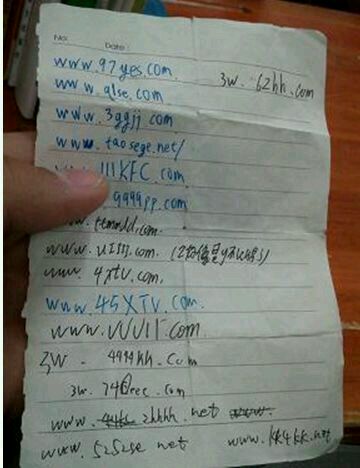 No.
Date:
www.97yes.com
3w.62hh.com
www.qlse.com
www.3ggjj.com
www.taosege.net/
www.111KFC.com
9999pp.com
www.
www.
www.4xtv.com.
www.45XTV.com.
www.VVV11.com
3W. 4444hh.com
3w.740eec.com
www. 2hhhh.net
www.5252se.net
www.kk4kk.net